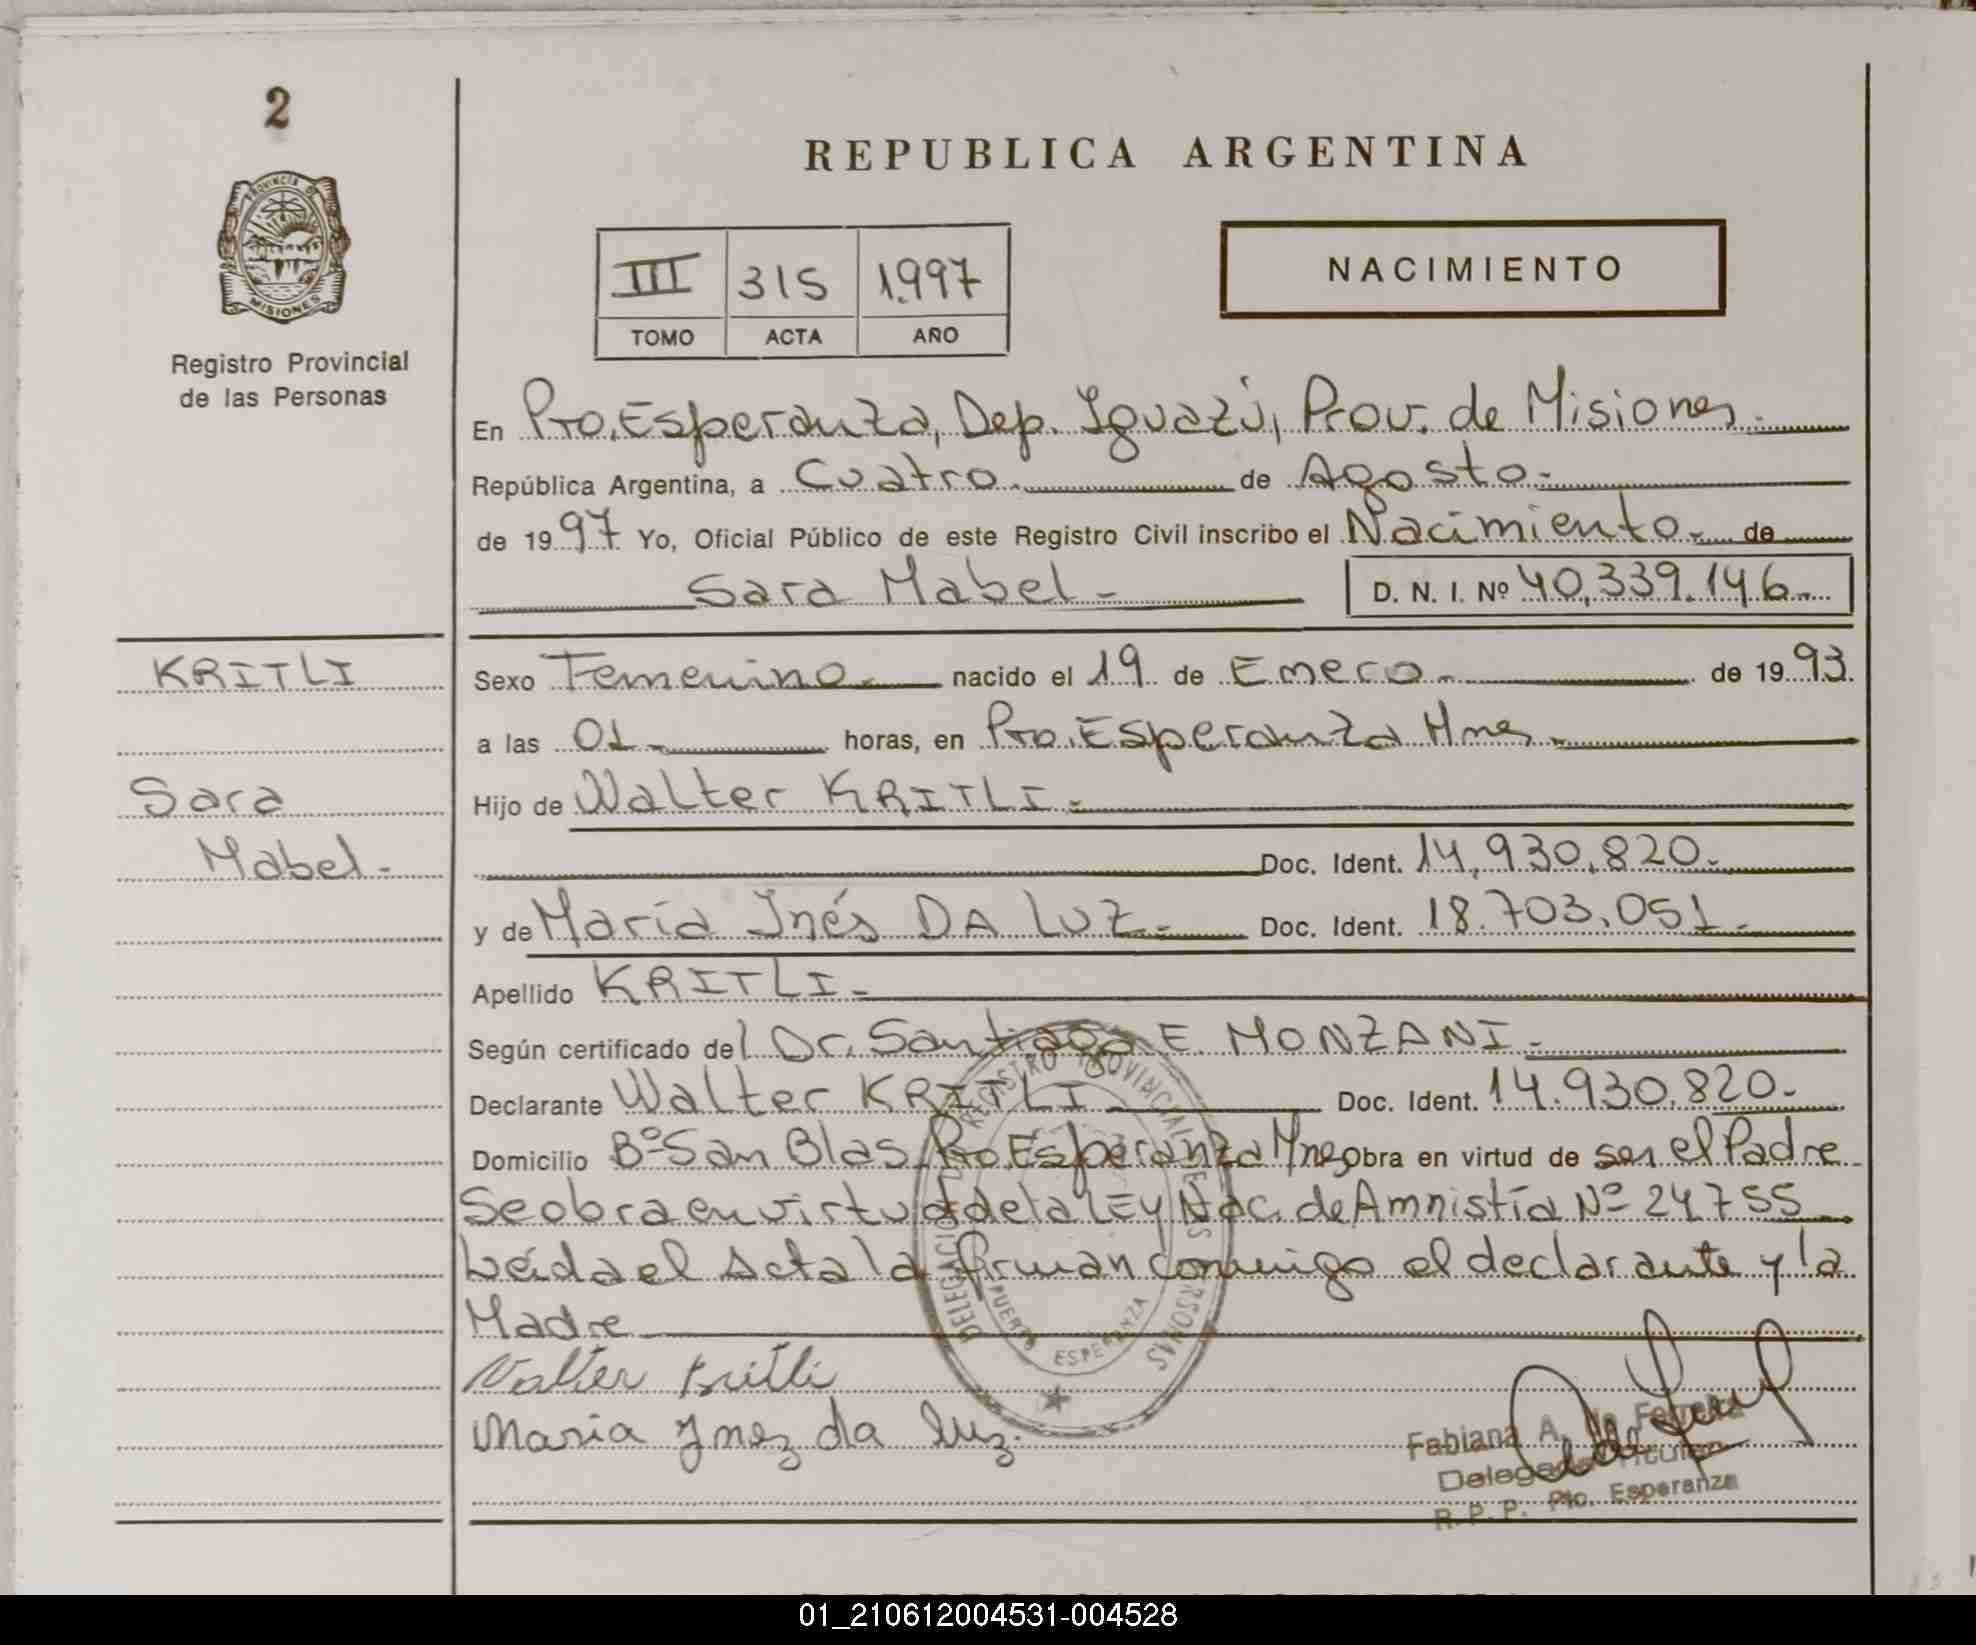 2
PROVINCIA DE
MISIONES
Registro Provincial
de las Personas
REPUBLICA ARGENTINA
III 315 1.997
TOMO ACTA AÑO
NACIMIENTO
En Pto. Esperanza, Dep. Iguazú, Prov. de Misiones.
República Argentina, a Cuatro. de Agosto.-
de 1997 Yo, Oficial Público de este Registro Civil inscribo el Nacimiento.- de
Sara Mabel.- D. N. I. Nº 40.339.146.-
KRITLI
Sara
Mabel.-
Sexo Femenino.- nacido el 19 de Enero.- de 1993.
a las 01.- horas, en Pto. Esperanza Mnes.-
Hijo de Walter KRITLI.-
Doc. Ident. 14.930.820.-
y de María Inés DA LUZ.- Doc. Ident. 18.703.051.-
Apellido KRITLI.-
Según certificado del Dr. Santiago E. MONZANI.-
Declarante Walter KRITLI Doc. Ident. 14.930.820.-
Domicilio Bº San Blas, Pto Esperanza Mnes obra en virtud de ser el Padre
Se obra en virtud de la LEY Nac. de Amnistía Nº 24.755
Leída el Acta la firman conmigo el declarante y la
Madre
Walter Kritli
Maria Ynez da luz.
REGISTRO PROVINCIAL DE LAS PERSONAS
DELEGACION
PUERTO ESPERANZA
Fabiana A. de Ferreira
Delegada Titular
R. P. P. Pto. Esperanza
01_210612004531-004528